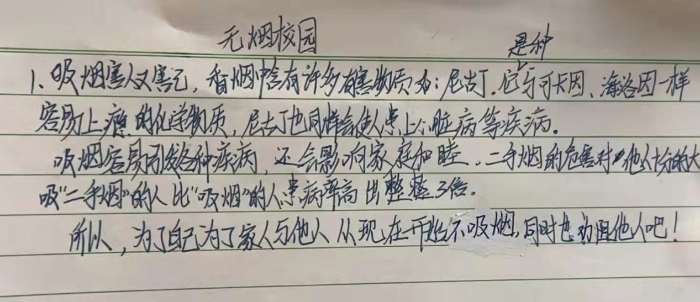 无烟校园
是种
1、吸烟害人又害己，香烟中含有许多有害物质如：尼古丁，它与可卡因、海洛因一样
容易上瘾的化学物质，尼古丁也同样会使人患上心脏病等疾病。
吸烟容易引发各种疾病，还会影响家庭和睦。二手烟的危害对他人十分的大
吸“二手烟”的人比“吸烟”的人患病率高出整整3倍。
所以，为了自己为了家人与他人从现在开始不吸烟，同时也劝阻他人吧！